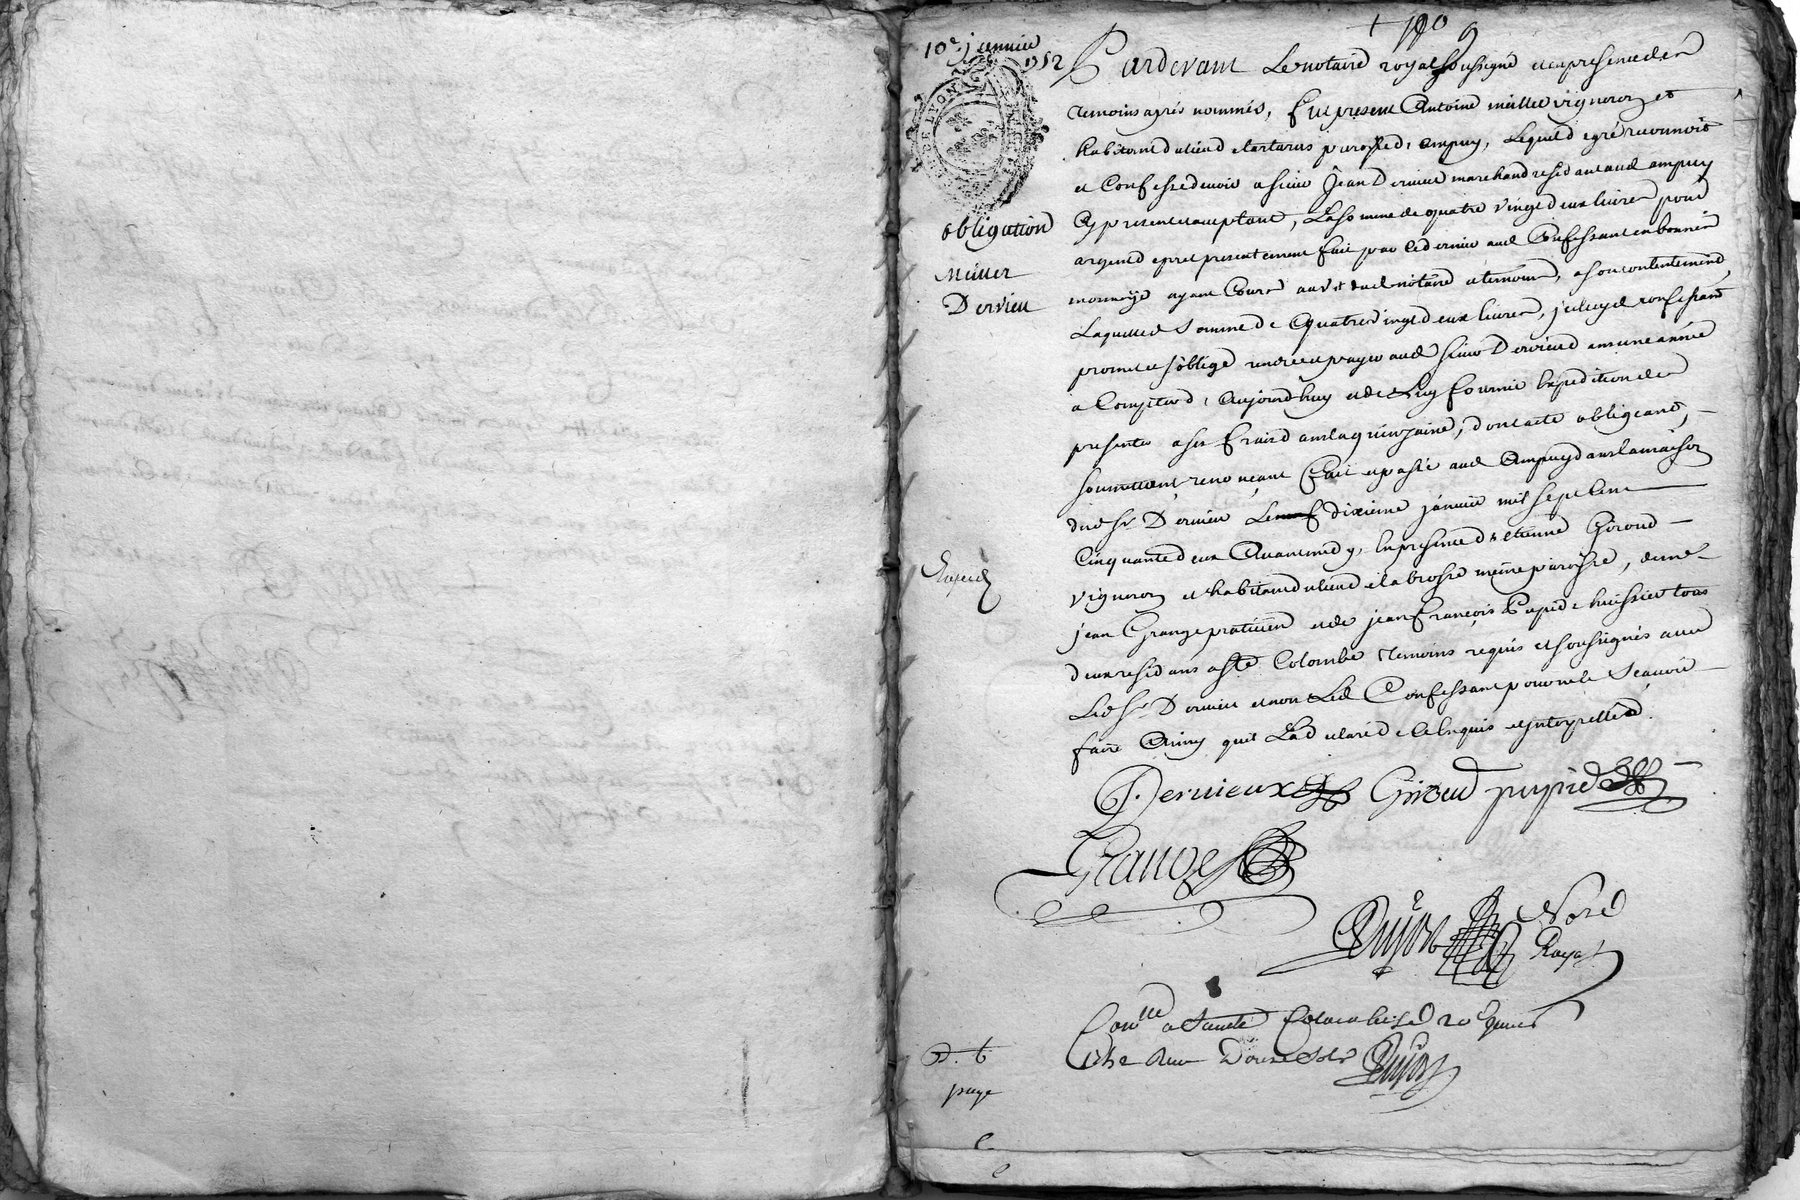 10e. janvier
1752
Pardevant Le notaire royal soussigné et en presence des
temoins après nommés, fut present Antoine meiller vigneron et
habitant du lieu de tartaras paroisse d'ampuy, Lequel de gré reconnoit
et Confesse devoir a sieur Jean Dervieu marchand residant aud ampuy
Cy present et acceptant, La somme de quatre vingt deux livres pour
argent de pret presentement fait par led dervieu aud Confessant en bonnes
monnoye ayant Cours au vû dud notaire et temoins, a son contentement
Laquelle Somme de quatre vingt deux livres, iceluy confessant
promet et s'oblige rendre et payer aud sieur Dervieu dans une année
a Compter d'Aujourd'huy et de Luy fournir Expedition des
presentes a ses fraix dans la quinzaine, dont acte obligeant,
soumettant, renonçant fait et passé aud Ampuy dans la maison
dud Sr Dervieu Le dixieme janvier mil sept Cent
Cinquante deux Avant midy, En presence d'etienne Giroud
vigneron et habitant du lieu de la brosse meme paroisse, de me
jean Grange praticien et de jean françois Pupid huissier tous
deux residans a Ste Colombe temoins requis et soussignés avec
Led Sr Dervieu et non Led Confessant pour ne le Scavoir
faire Ainsy quil La declaré de ce Enquis et interpellé
obligation
Meiller
Dervieu
Expedié
J. Dervieux Giroud pupid
Grange
Dujon Nore
Royal
Conlle a Sainte Colombe le 20e Janvier
1752 Reçu Douze Sols Dujon
page